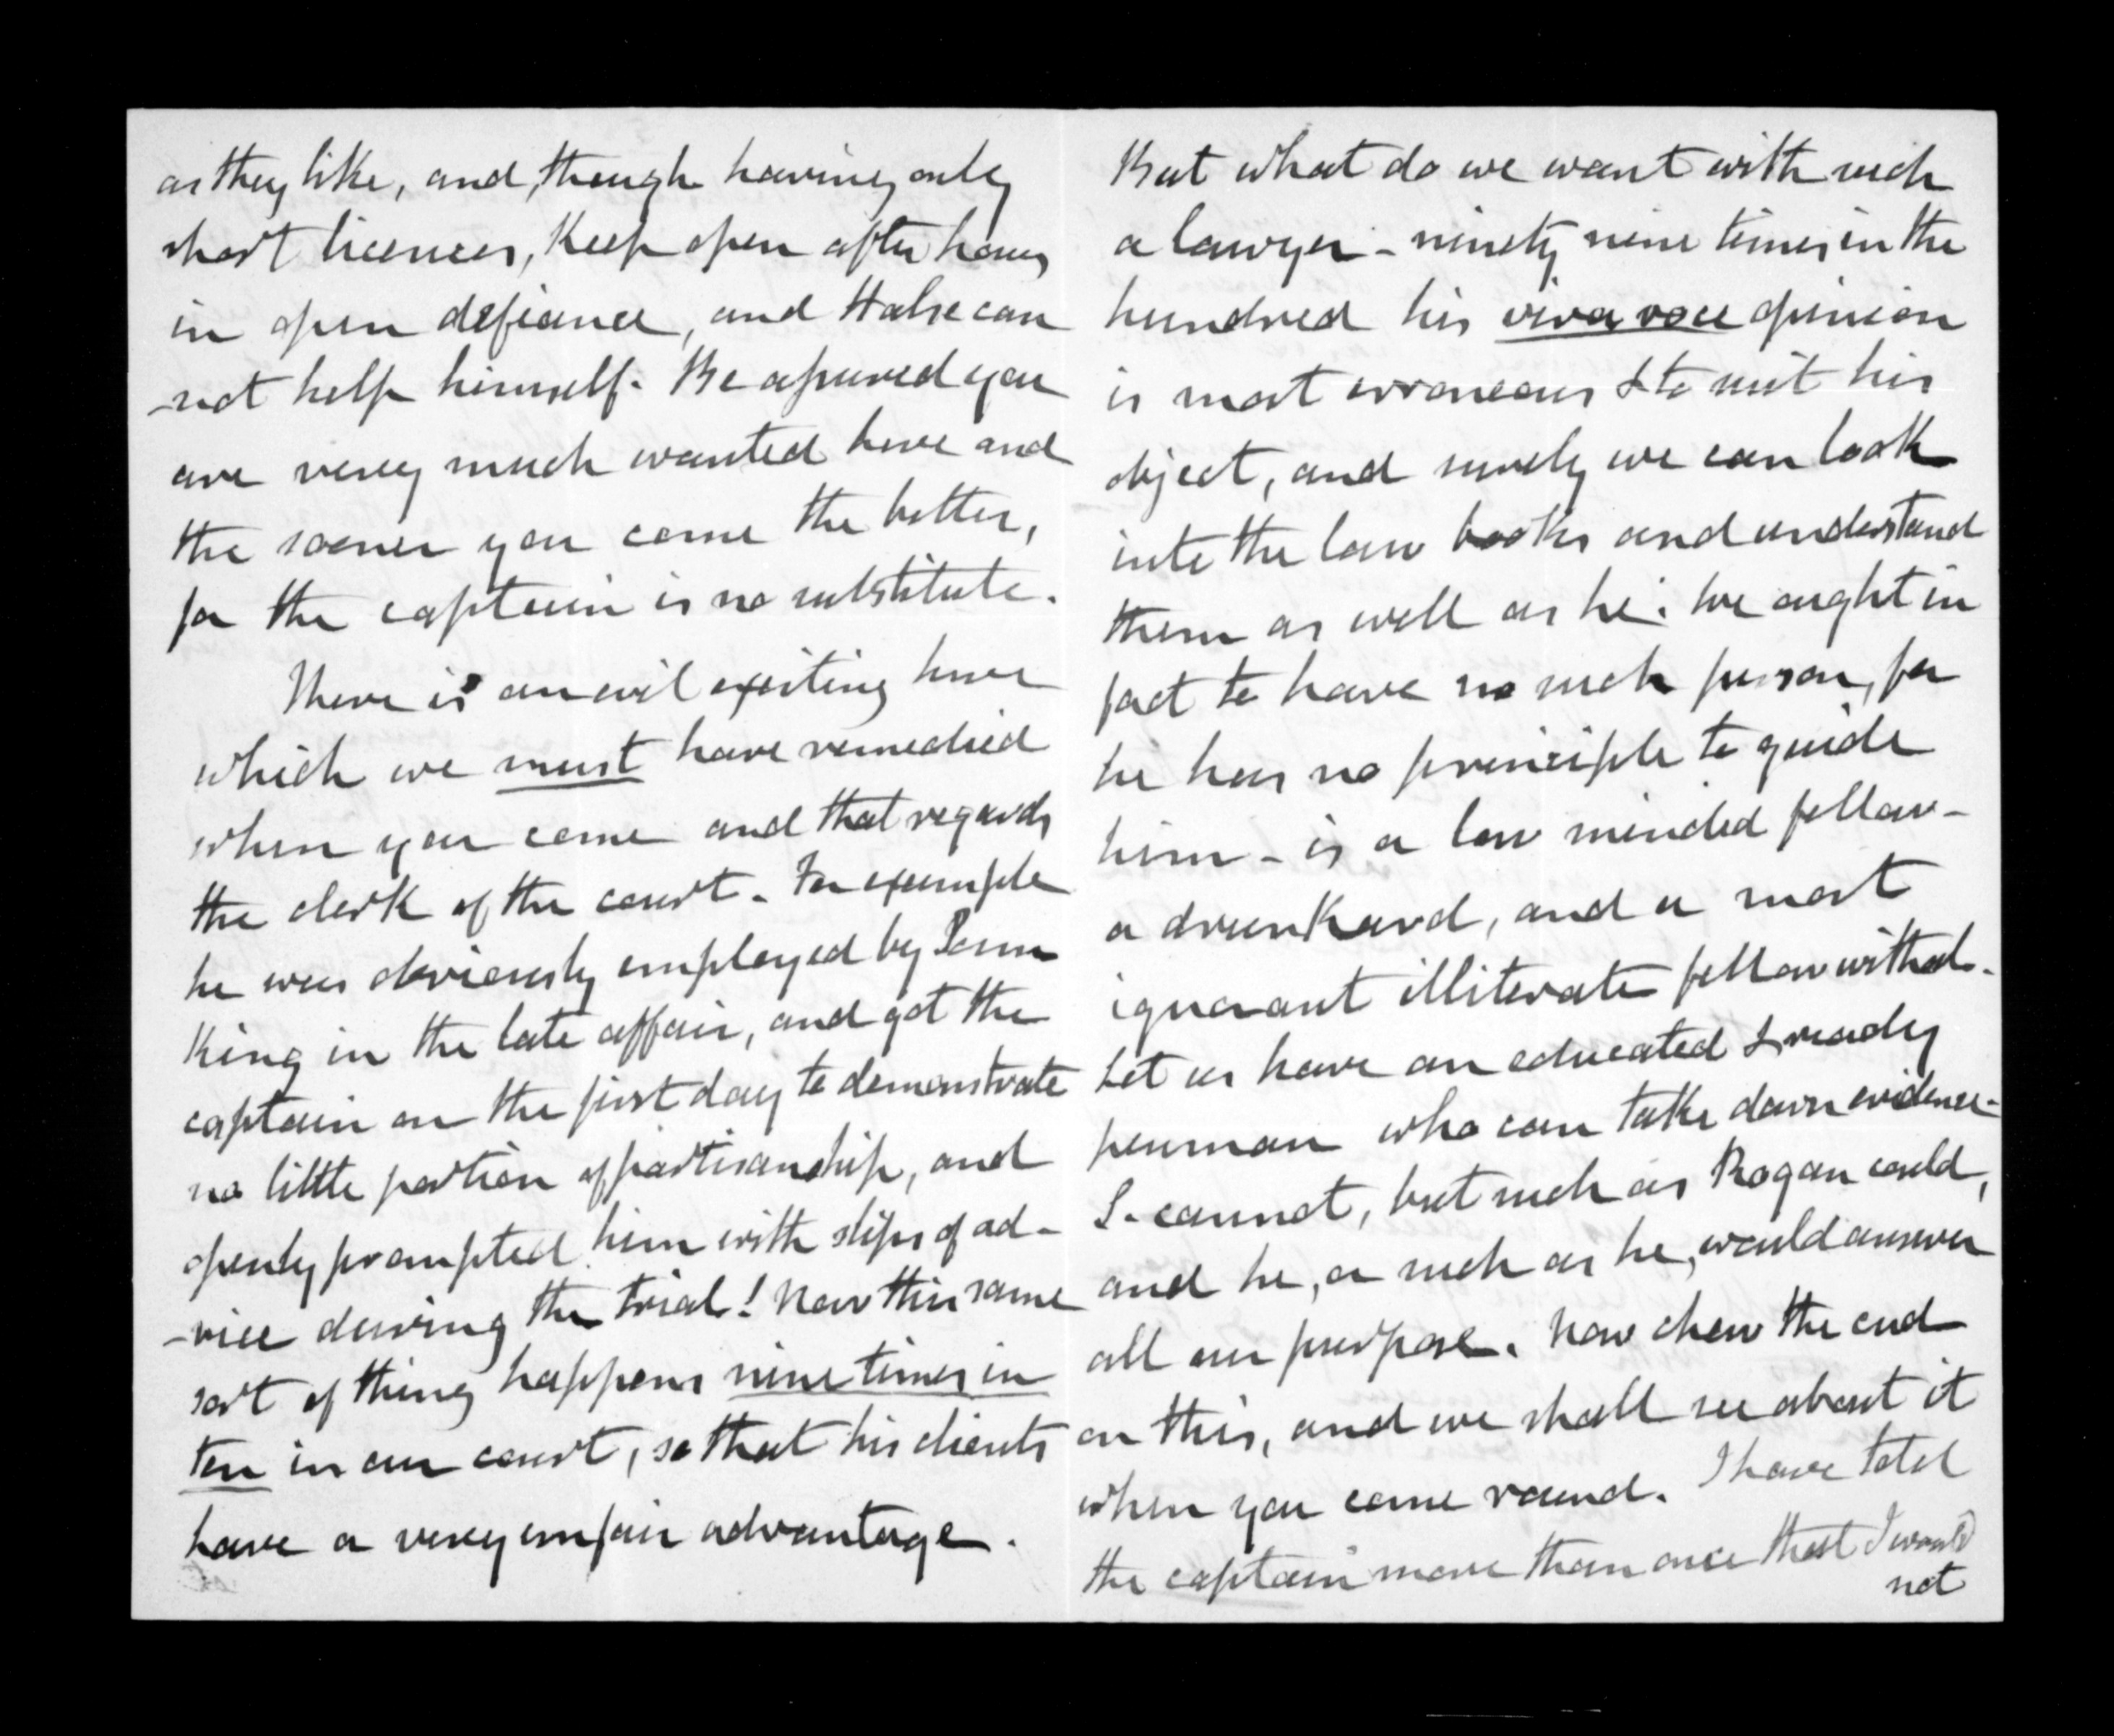 as they like, and, though having only
short licences, Keep open after hours
in open defiance, and Halse can
-not help himself. Be assured you
are very much wanted here and
the sooner you come the better,
for the captain is no substitute.
There is an evil existing here
which we must have remedied
when you come and that regards
the clerk of the court. For example
he was obviously employed by
King in the late affair, and got the
captain on the first day to demonstrate
no little portion of partisanship, and
openly prompted him with slips of ad-
-vice during the trial! Now this same
sort of thing happens nine times in
ten in our court, so that his clients
have a very unfair advantage.
But what do we want with such
a lawyer - ninety nine times in the
hundred his viva voce opinion
is most erroneous & to suit his
object, and surely we can look
into the law books and understand
them as well as he. We ought in
fact to have no such person, for
he has no principle to guide
him - is a low minded fellow -
a drunkard, and a most
ignorant illiterate fellow withal.
Let us have an educated & ready
penman who can take down evidence -
I cannot, but such as Rogan could,
and he, or such as he, would answer
all our purpose. Now chew the cud
on this, and we shall see about it
when you come round. I have told
the captain more than once that I would
not